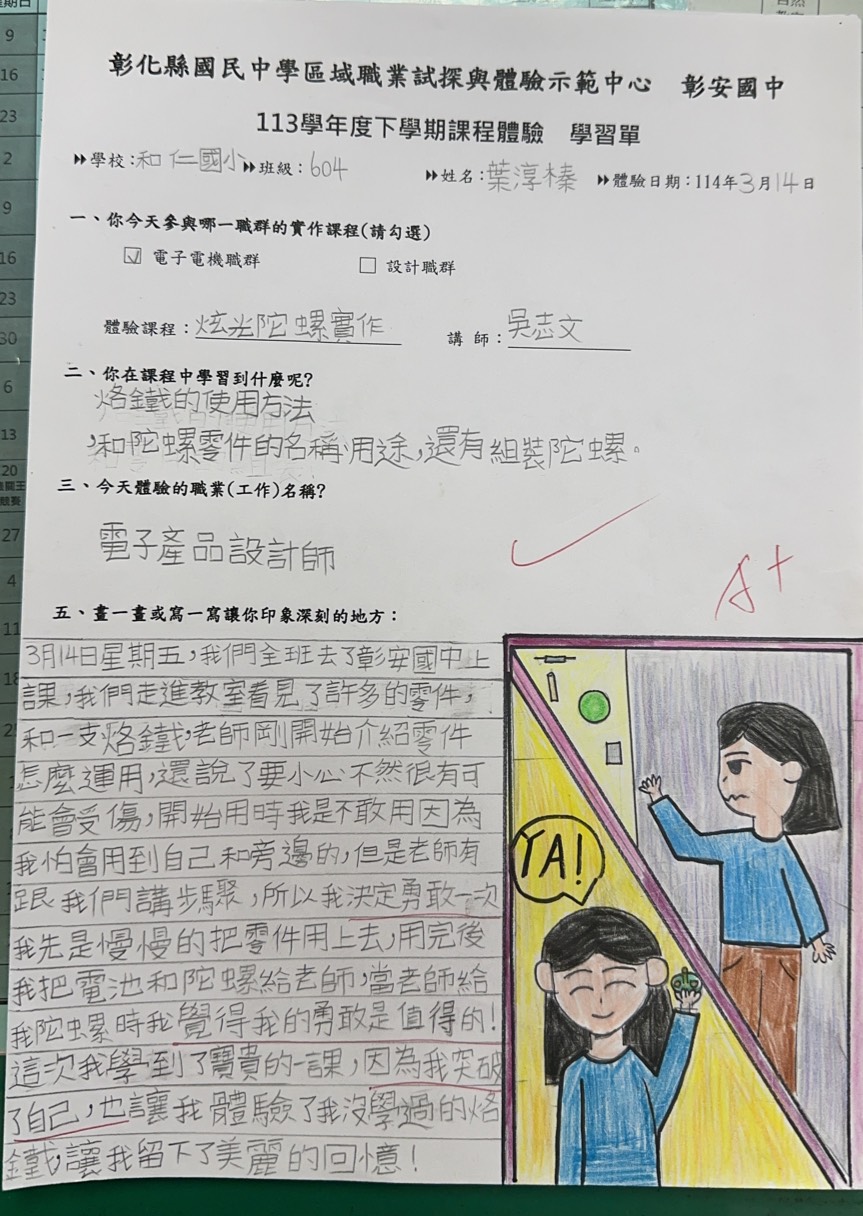 彰化縣國民中學區域職業試探與體驗示範中心 彰安國中
113學年度下學期課程體驗 學習單
學校：和仁國小 班級：604 姓名：葉淳榛 體驗日期：114年3月14日
一、你今天參與哪一職群的實作課程(請勾選)
☑ 電子電機職群 □ 設計職群
體驗課程：炫光陀螺實作 講師：吳志文
二、你在課程中學習到什麼呢?
烙鐵的使用方法
，和陀螺零件的名稱、用途，還有組裝陀螺。
三、今天體驗的職業(工作)名稱?
電子產品設計師
A+
五、畫一畫或寫一寫讓你印象深刻的地方：
3月14日星期五，我們全班去了彰安國中上
課，我們走進教室看見了許多的零件，
和一支烙鐵，老師剛開始介紹零件
怎麼運用，還說了要小心不然很有可
能會受傷，開始用時我是不敢用因為
我怕會用到自己和旁邊的，但是老師有
跟我們講步驟，所以我決定勇敢一次
我先是慢慢的把零件用上去，用完後
我把電池和陀螺給老師，當老師給
我陀螺時我覺得我的勇敢是值得的！
這次我學到了寶貴的一課，因為我突破
了自己，也讓我體驗了我沒學過的烙
鐵，讓我留下了美麗的回憶！
YA!
9
16
23
2
9
16
23
30
6
13
20
27
4
11